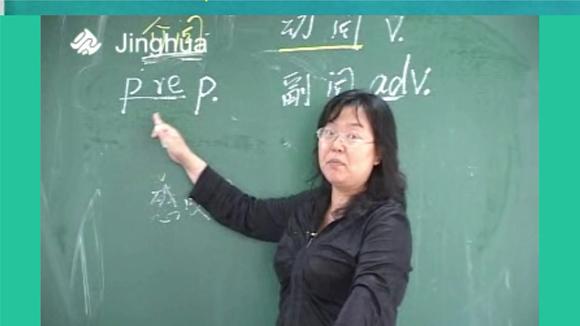 介词 动词 v.
Jinghua
prep. 副词 adv.